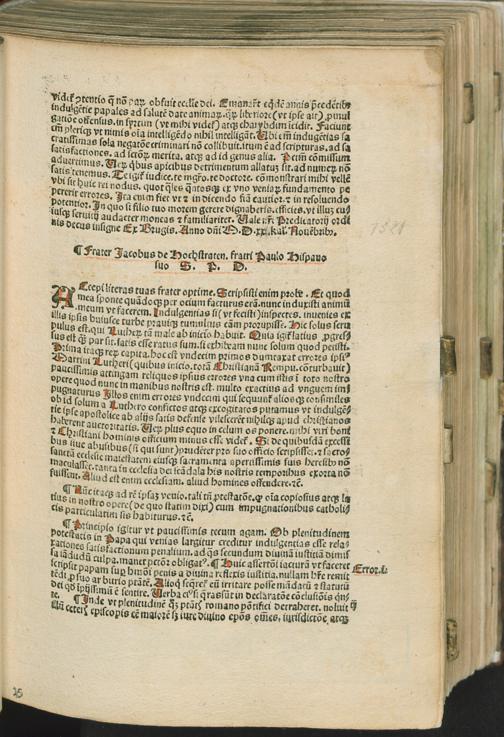 videt ꝯtentio q̃ nõ paꝝ obfuit ecclie dei. Emanarũt eqdẽ annis p̃cedẽtibꝰ
indulgẽtie papales ad salutẽ date animaꝝ, q̃ꝝ liberiore (vt ipse ait) ,pmul
gatiõe offensus, in syrtim (vt mihi videt) atqꝫ charybdim ĩcidit. Faciunt
em̃ pleriqꝫ vt nimis oĩa intelligẽdo nihil intelligãt. Ubi em̃ indulgẽtias sa
cratissimas sola negatõe criminari nõ
satisfactiones, ad sctõꝝ merita, atqꝫ ad id genus alia.
aduertimus. Uerũ q̃bus apicibus detrimentum allatuꝫ sit, ad numeꝝ nõ
satis tenemus. Te igit iudice, te mgro, te doctore, cõmonstrari mihi vellẽ
vbi sit huic rei nodus, quot q̃les q̃ntosqꝫ ex vno veniaꝝ fundamento pe
pererit errores. Ita enim fiet vt ⁊ in dicendo siã cautior, ⁊ in resoluendo
potentior. In quo si filio tuo morem gerere dignaberis, efficies, vt illuꝫ cui
iusqꝫ seruitij audacter moneas ⁊ familiariter. Uale xp̃i Predicatorij ordi
nis decus insigne Ex Brugis. Anno dñi M.D.xxi. kal. Nouẽbris.
1521
¶ Frater Jacobus de Hochstraten, fratri Paulo Hispano
suo S. P. D.
Accepi literas tuas frater optime. Scripsisti enim probe. Et quod
mea sponte quãdoqꝫ per ocium facturus erã, nunc induxisti animũ
meum vt facerem. Indulgentias si (vt fecisti) inspectes, inuenies ex
illis ipsis huiusce turbe prauũqꝫ tumultus eãm prorupisse. Hic solus seru
pulus est, qui Lutherũ tã male ab inicio habuit. Quia igit latius ,pgres
sus est q̃ par sit, satis esse ratus sum, si exhibeam nunc solum quod petisti.
Prima itaqꝫ rerũ capita, hoc est vndecim primos dumtaxat errores ipsiꝰ
Martini Lutheri (quibus inicio, totã Christianã Rempu. cõturbauit)
paucissimis attingam, reliquos ipsius errores vna cum istis ĩ toto nostro
opere quod nunc in manibus nostris est, multo exactius ad vnguem im
pugnaturus Illos enim errores vndecim qui sequunt aliosqꝫ cõsimiles
ob id solum a Luthero confictos atqꝫ excogitatos putamus vt indulgẽ
tie ipse apostolice ab alijs satis defense vilescerẽt nihilqꝫ apud christianos
haberent auctoritatis. Uerũ plus equo in celum os ponere, mihi viri boni
⁊ Christiani hominis officium minus esse videt. Si de quibusdã excessi
bus siue abusibus (si qui sunt) prudẽter pro suo officio scripsisset, ⁊ sacro
sanctã ecclesie maiestatem eiusqꝫ sacramenta apertissimis suis heresibꝰ nõ
maculasset, tanta in ecclesia dei scãdala his nostris temporibus exorta nõ
fuissent. Aliud est enim ecclesiam, aliud homines offendere ⁊c.
¶ Nũc itaqꝫ ad rẽ ipsaꝫ venio, tali tñ ptestatõe, q̃ oĩa copiosius atqꝫ la
tius in nostro opere (de quo statim dixi) cum impugnationibus catholi
cis particulatim sis habiturus. ⁊c.
¶ Principio igitur vt paucissimis tecum agam. Ob plenitudinem
potestatis in Papa qui venias largitur creditur indulgentias esse rela
xationes satisfactionum penalium, ad q̃s secundum diuinã iustitiã dimis
sa iã dudũ culpa, manet pctõr obligatꝰ. ¶ Huic assertõi iacturã vt faceret
Error.i.
scripsit papam suꝑ hmõi penis a diuina reflexis iustitia, nullam hr̃e remit
tẽdi ꝓ suo arbitrio ptãtẽ. Alioq̃ seq̃ret eũ irritare posse mãdatũ ⁊ staturã
dei qd̃ ipissimũ ẽ sentire. Uerba eꝰ si q̃ras sũt in declaratõe cõclusiõis qñ
te. ¶ Inde vt plenitudinẽ q̃ꝫ ptãti romano põtifici detraheret, noluit ip̃
sũ ceteris episcopis eẽ maiorẽ sꝫ iure diuino ep̃os om̃es, iurisdictõe, atqꝫ
25